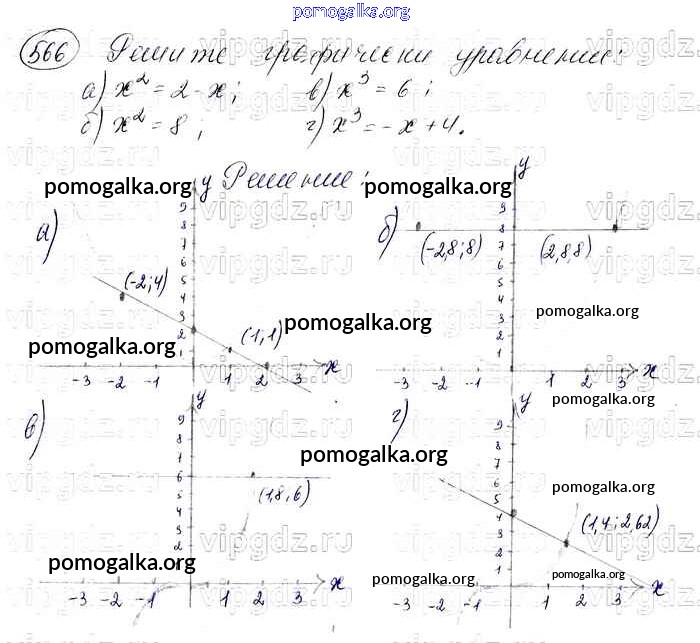 pomogalka.org
566 Решите графически уравнение:
а) x² = 2 - x; в) x³ = 6;
б) x² = 8; г) x³ = -x + 4.
Решение:
pomogalka.org pomogalka.org
vipgdz.ru vipgdz.ru
а) y
9
8
7
6
5
4
3
2
1
(-2; 4)
(1; 1)
-3 -2 -1 1 2 3 x
pomogalka.org
pomogalka.org
б) y
9
8
7
6
5
4
3
2
1
(-2,8; 8) (2,8; 8)
-3 -2 -1 1 2 3 x
pomogalka.org
pomogalka.org
в) y
9
8
7
6
5
4
3
2
(1,8; 6)
-3 -2 -1 1 2 3 x
pomogalka.org
pomogalka.org
г) y
9
8
7
6
5
4
3
2
1
(1,4; 2,62)
-3 -2 -1 1 2 3 x
pomogalka.org
pomogalka.org
pomogalka.org